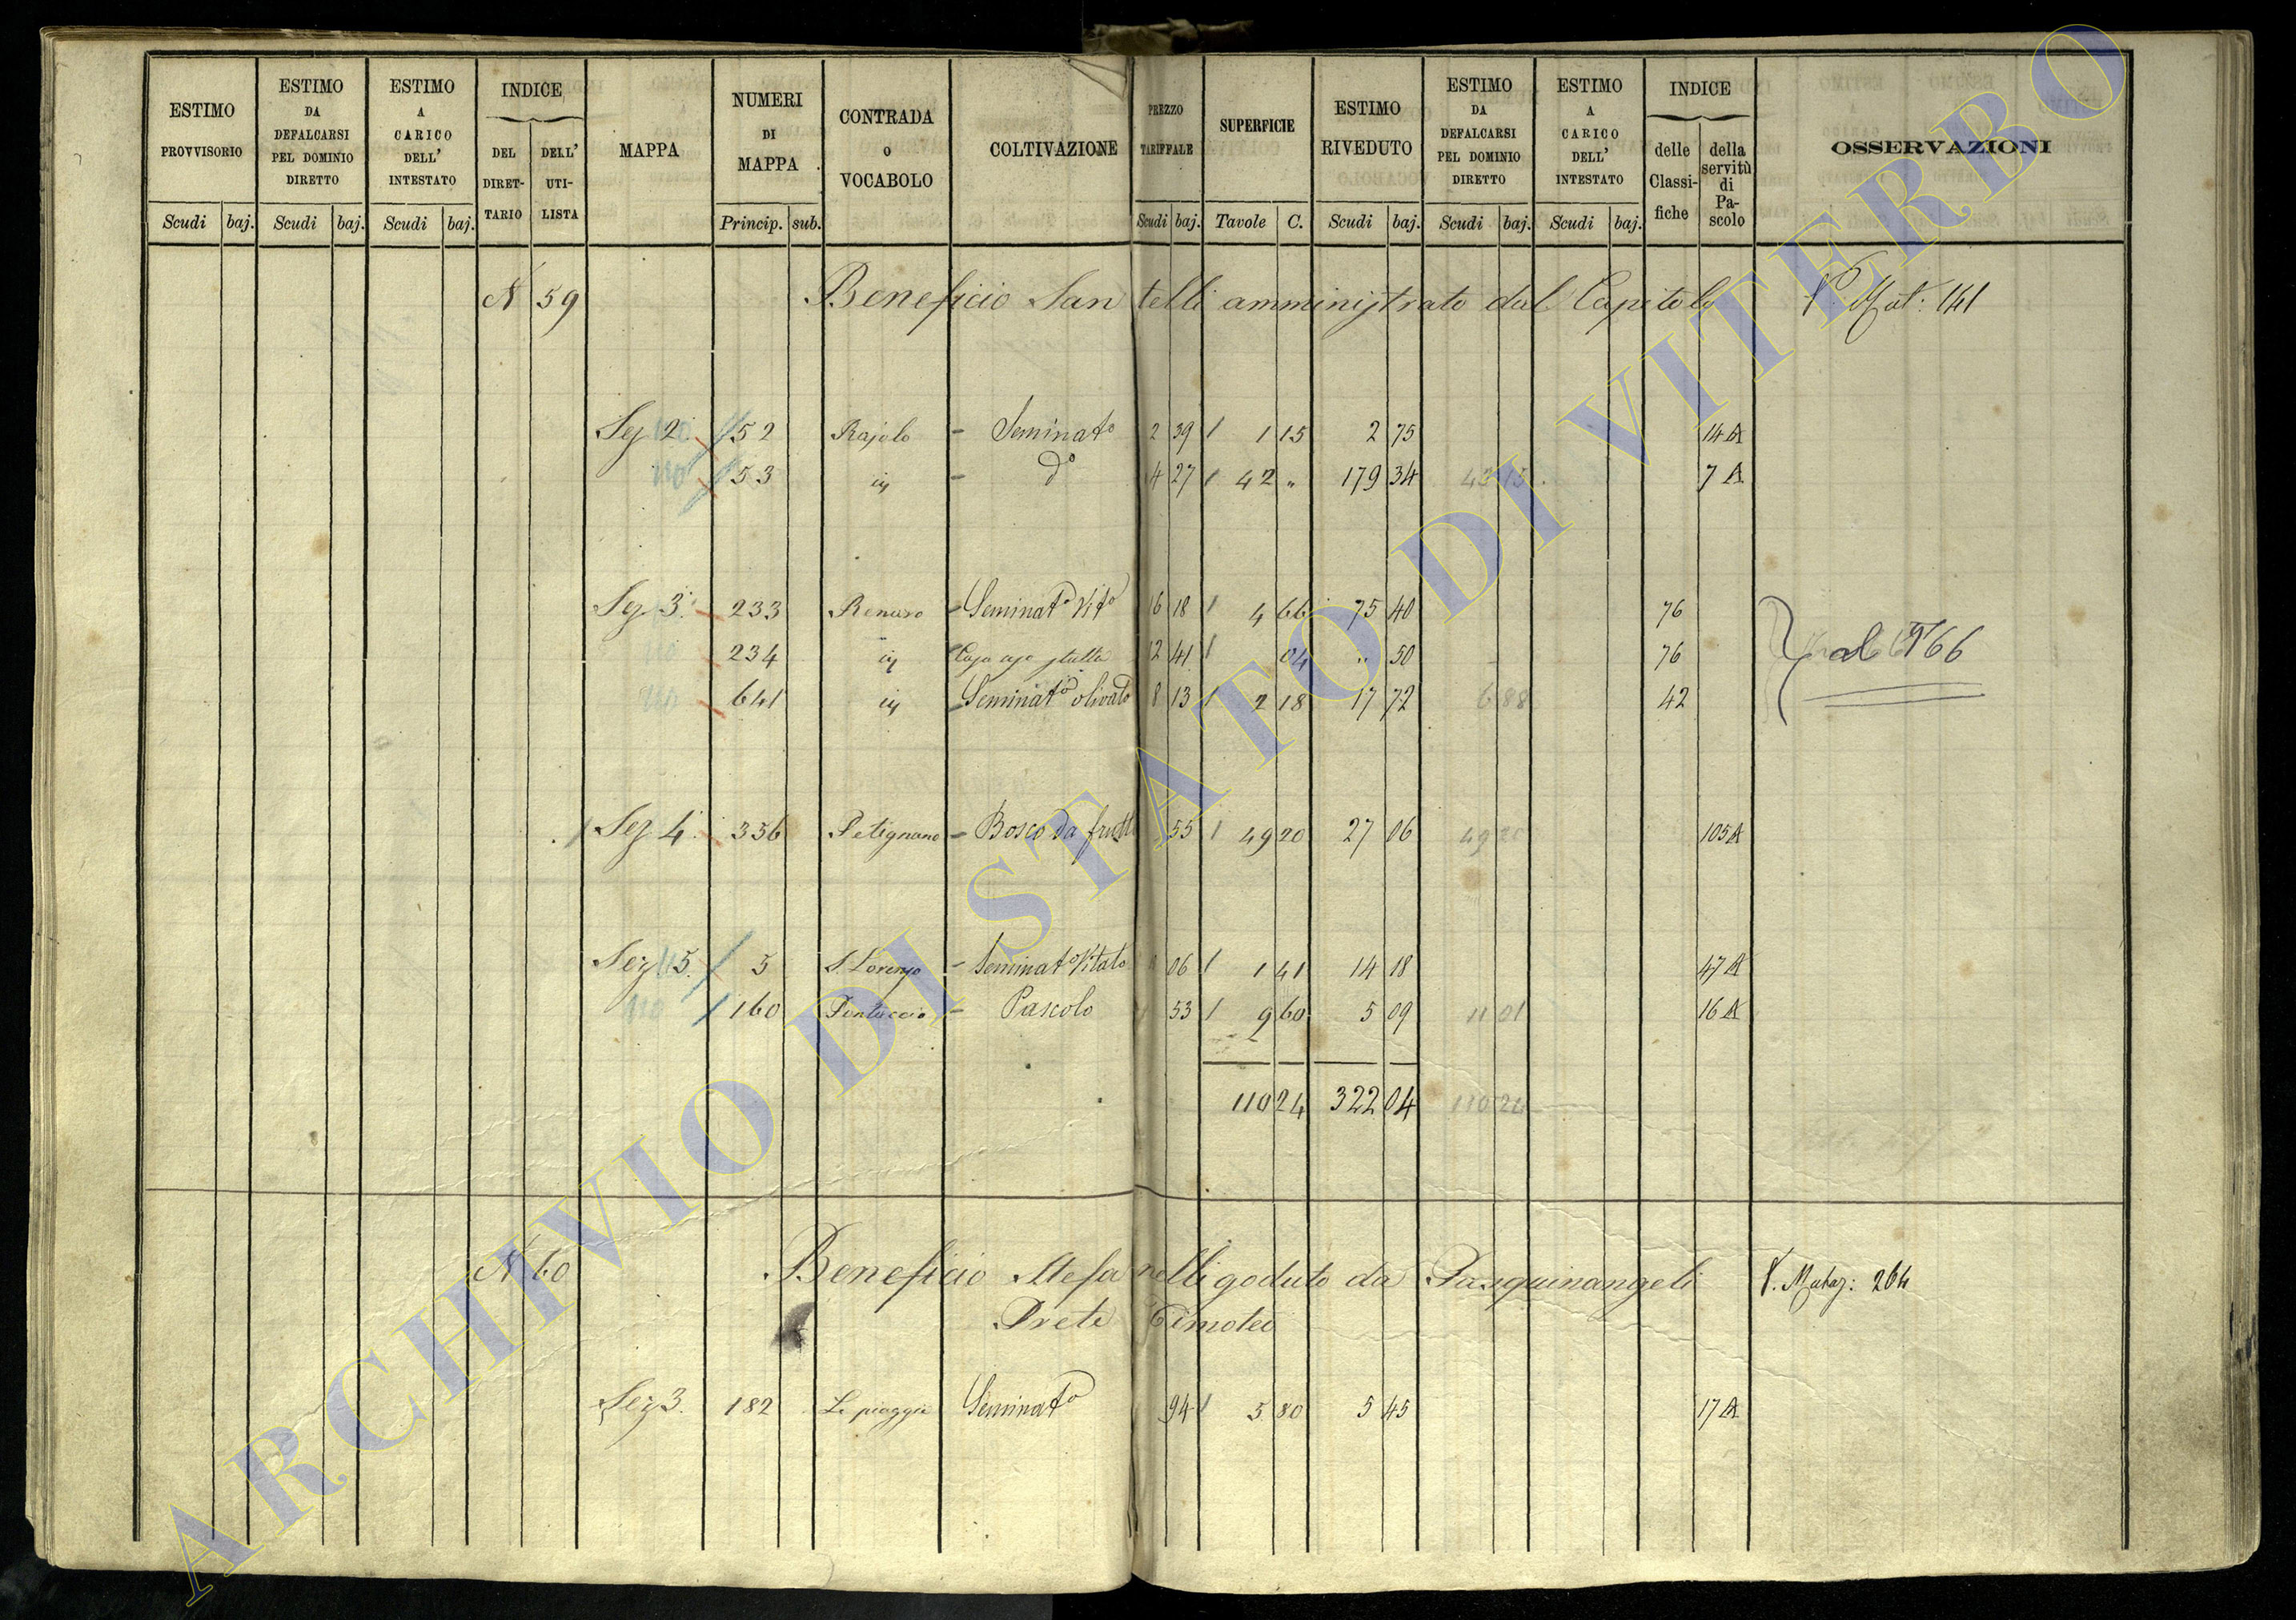 ESTIMO PROVVISORIO
Scudi baj.
ESTIMO DA DEFALCARSI PEL DOMINIO DIRETTO
Scudi baj.
ESTIMO A CARICO DELL' INTESTATO
Scudi baj.
INDICE
DEL DIRET-TARIO
DELL' UTI-LISTA
MAPPA
NUMERI DI MAPPA
Princip. sub.
CONTRADA O VOCABOLO
COLTIVAZIONE
PREZZO TARIFFALE
Scudi baj.
SUPERFICIE
Tavole C.
ESTIMO RIVEDUTO
Scudi baj.
ESTIMO DA DEFALCARSI PEL DOMINIO DIRETTO
Scudi baj.
ESTIMO A CARICO DELL' INTESTATO
Scudi baj.
INDICE
delle Classi-fiche
della servitù di Pa-scolo
OSSERVAZIONI
N 59 Beneficio Santelli amministrato dal Capitolo Mat: 141
Sez 2 52 Rajolo - Seminato 2 39 1 15 2 75 14 A
110 53 - do 4 27 42 " 179 34 43 15 7 A
Sez 3 233 - Seminato Vito 16 18 4 66 75 40 76
234 12 41 04 " 50 76 al 766
641 Seminato olivato 8 13 2 18 17 72 6 88 42
Sez 4 336 Petignano - Bosco da frutto 55 49 20 27 06 49 20 105 A
Sez 5 5 S. Lorenzo - Seminato Vitato 06 1 41 14 18 47 A
110 160 - Pascolo 53 9 60 5 09 11 01 16 A
110 24 322 04 110 24
N 60 Beneficio Stefanelli goduto da Pasquinangeli V. Mataz: 264
Prete Timoteo
Sez 3. 182 Le piaggie Seminato 94 5 80 5 45 17 A
ARCHIVIO DI STATO DI VITERBO